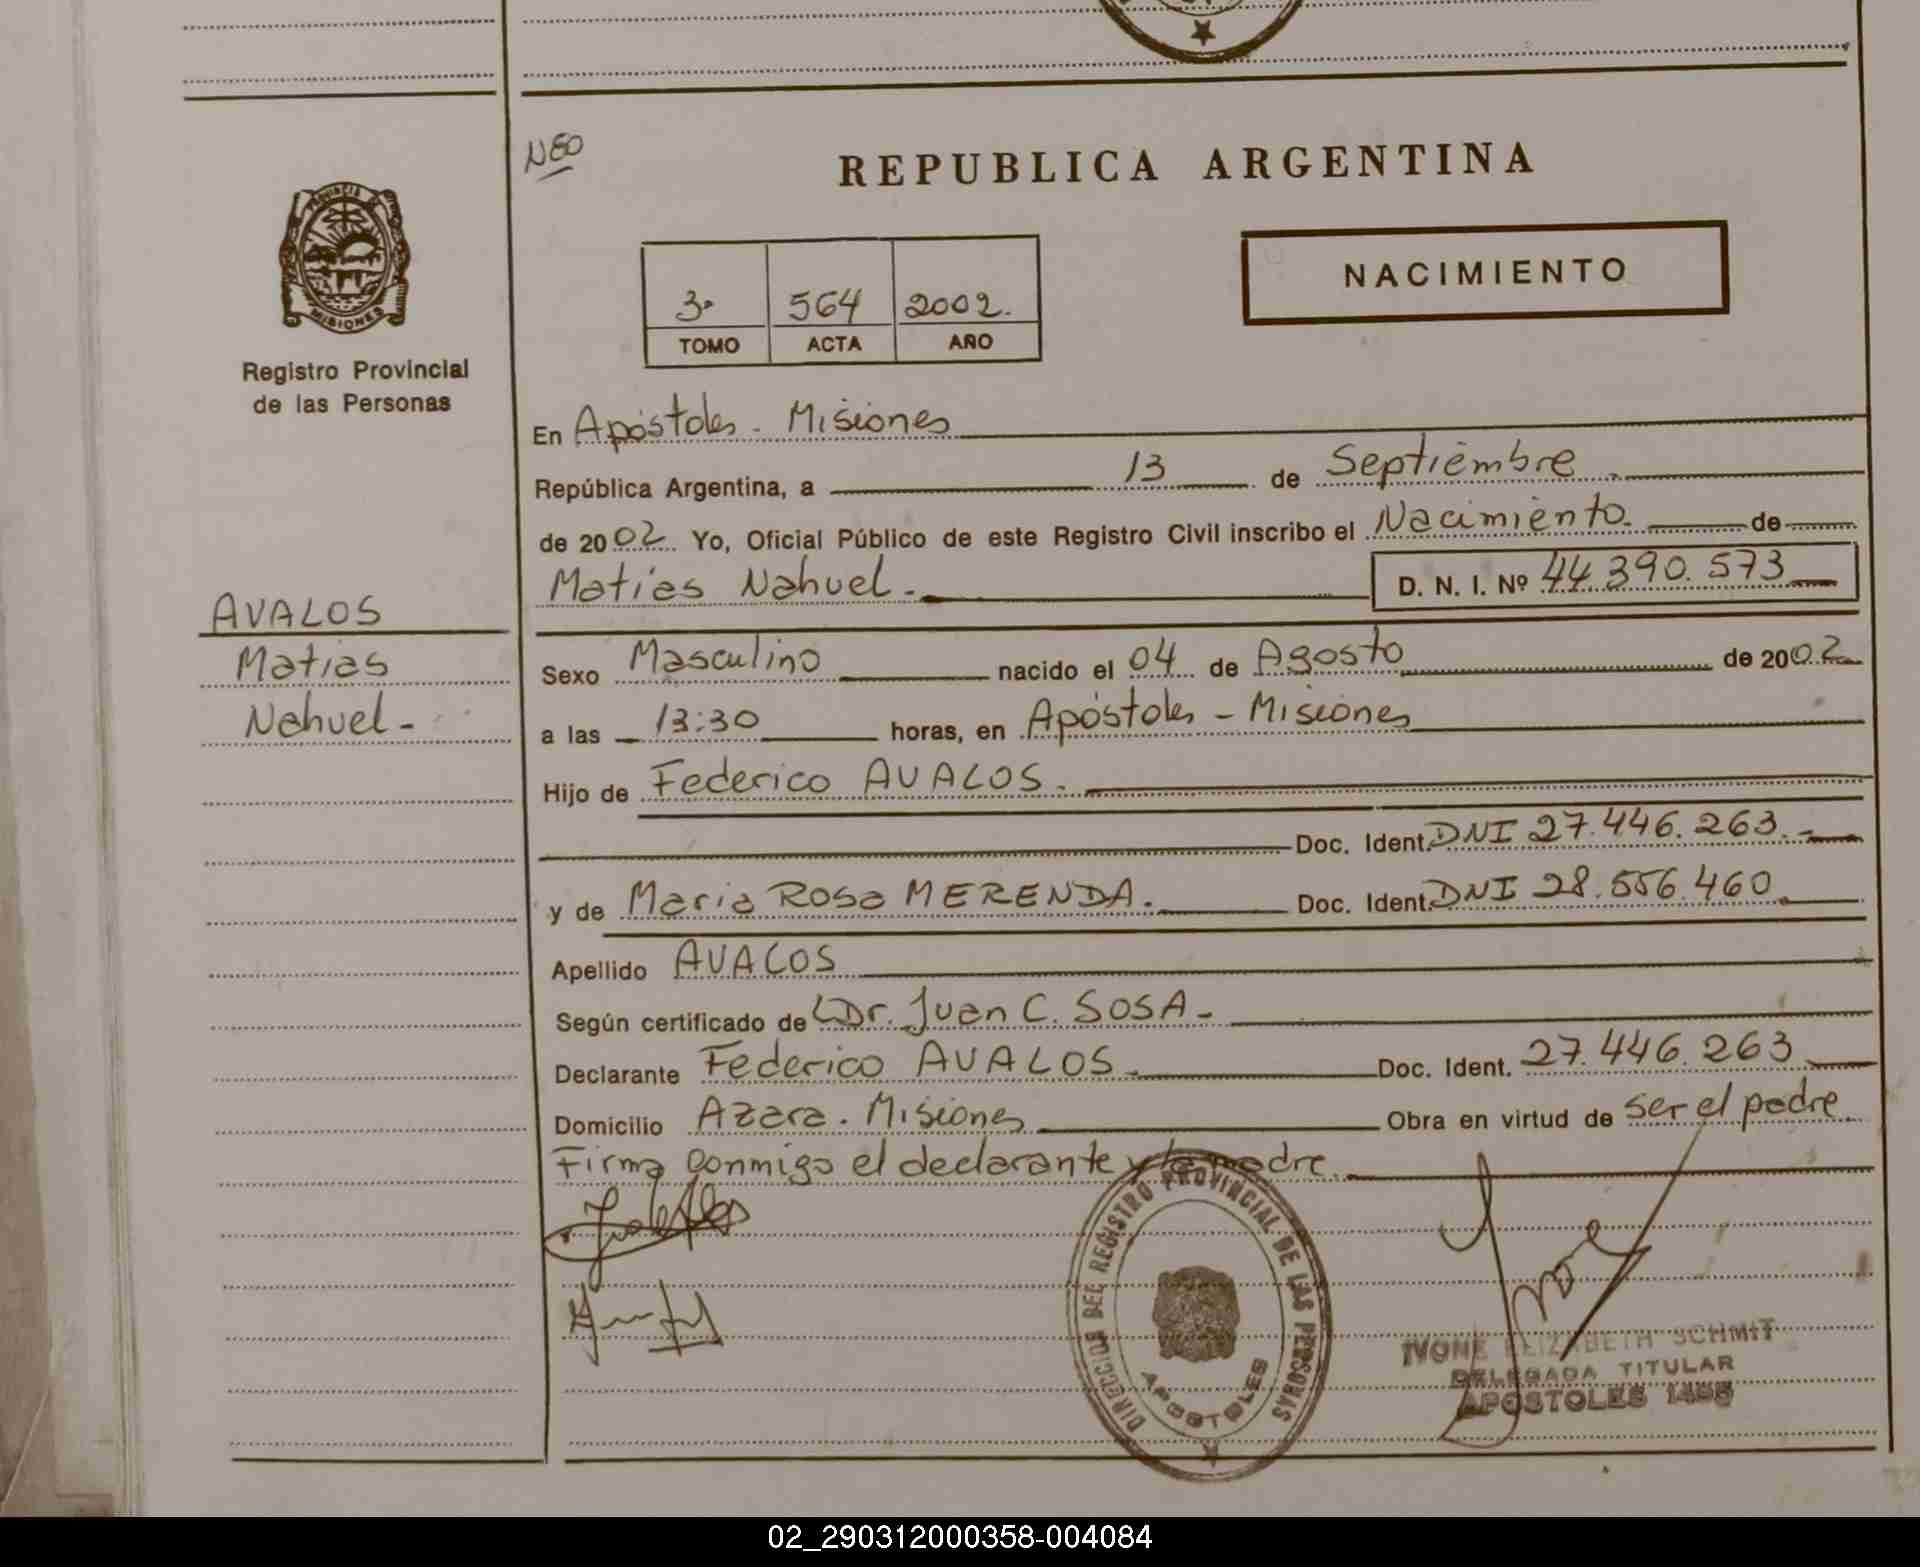 NEO
REPUBLICA ARGENTINA
PROVINCIA DE
MISIONES
Registro Provincial
de las Personas
3º 564 2002.
TOMO ACTA AÑO
NACIMIENTO
En Apóstoles - Misiones
República Argentina, a 13 de Septiembre
de 2002 Yo, Oficial Público de este Registro Civil inscribo el Nacimiento de
Matías Nahuel.- D. N. I. Nº 44.390.573
AVALOS
Matias
Nahuel-
Sexo Masculino nacido el 04 de Agosto de 2002
a las 13:30 horas, en Apóstoles - Misiones
Hijo de Federico AVALOS.
Doc. Ident. DNI 27.446.263.-
y de Maria Rosa MERENDA. Doc. Ident. DNI 28.556.460
Apellido AVALOS
Según certificado de Dr. Juan C. SOSA-
Declarante Federico AVALOS- Doc. Ident. 27.446.263
Domicilio Azara. Misiones Obra en virtud de ser el padre
Firma conmigo el declarante y la madre.
DIRECCION DEL REGISTRO PROVINCIAL DE LAS PERSONAS
APOSTOLES
IVONE ELIZABETH SCHMIT
DELEGADA TITULAR
APOSTOLES
02_290312000358-004084